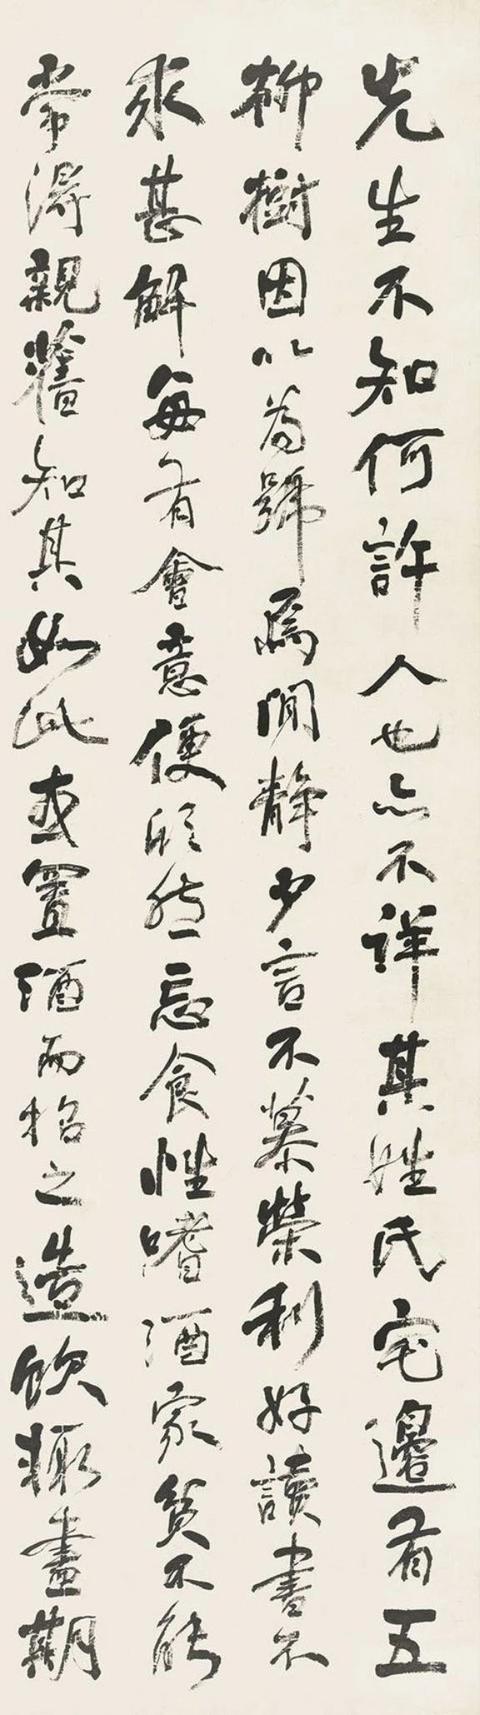 先生不知何許人也亦不詳其姓氏宅邊有五
柳樹因以為號焉閒靜少言不慕榮利好讀書不
求甚解每有會意便欣然忘食性嗜酒家貧不能
常得親舊知其如此或置酒而招之造飲輒盡期